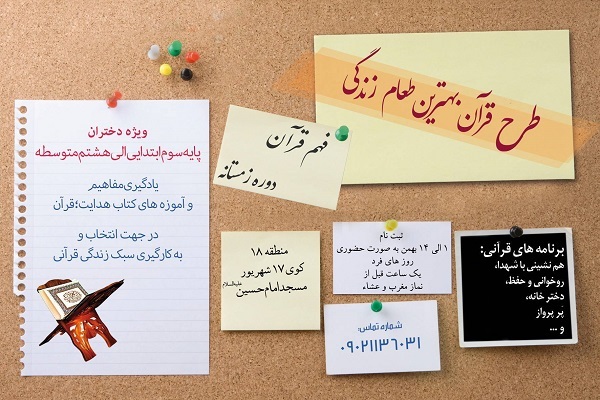 طرح قرآن بهترین طعام زندگی
فهم قرآن
دوره زمستانه
ویژه دختران
پایه سوم ابتدایی الی هشتم متوسطه
یادگیری مفاهیم
و آموزه های کتاب هدایت؛ قرآن
در جهت انتخاب و
به کارگیری سبک زندگی قرآنی
منطقه ۱۸
کوی ۱۷ شهریور
مسجد امام حسین علیه‌السلام
ثبت نام
۱ الی ۱۴ بهمن به صورت حضوری
روز های فرد
یک ساعت قبل از
نماز مغرب و عشاء
شماره تماس:
۰۹۰۲۱۱۳۶۰۳۱
برنامه های قرآنی:
هم نشینی با شهدا،
روخوانی و حفظ،
دختر خانه،
پر پرواز
و ...